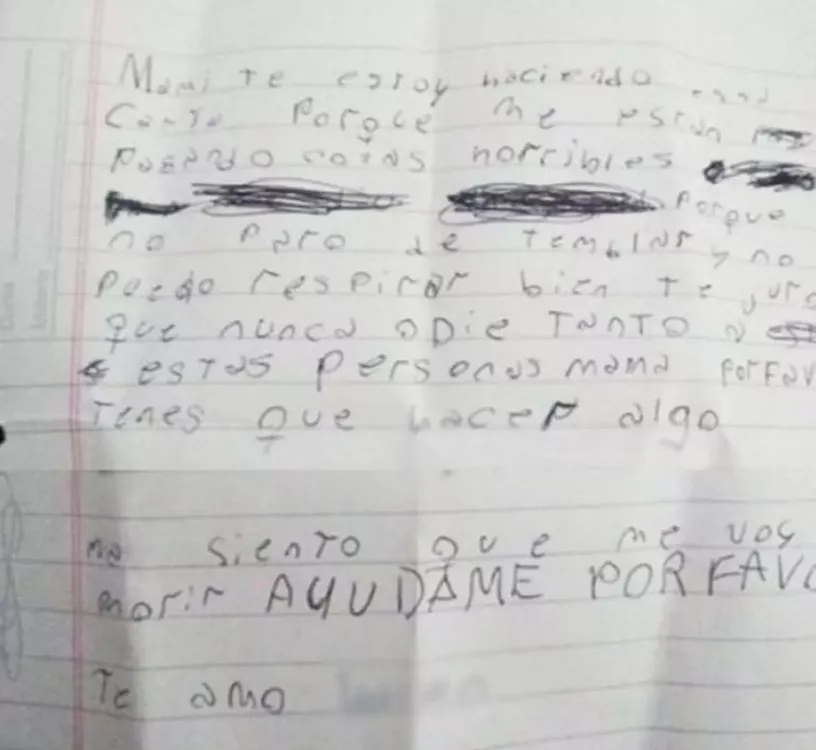 Mami Te estoy haciendo esta
Carta Porque me estan
Pasando cosas horribles
Porque
no Paro de Temblar y no
Puedo respirar bien Te juro
que nunca odie TanTo a
estas Personas mama PorFav
Tenes que hacer algo
me SienTo que me voy
morir AYUDAME POR FAVO
Te amo